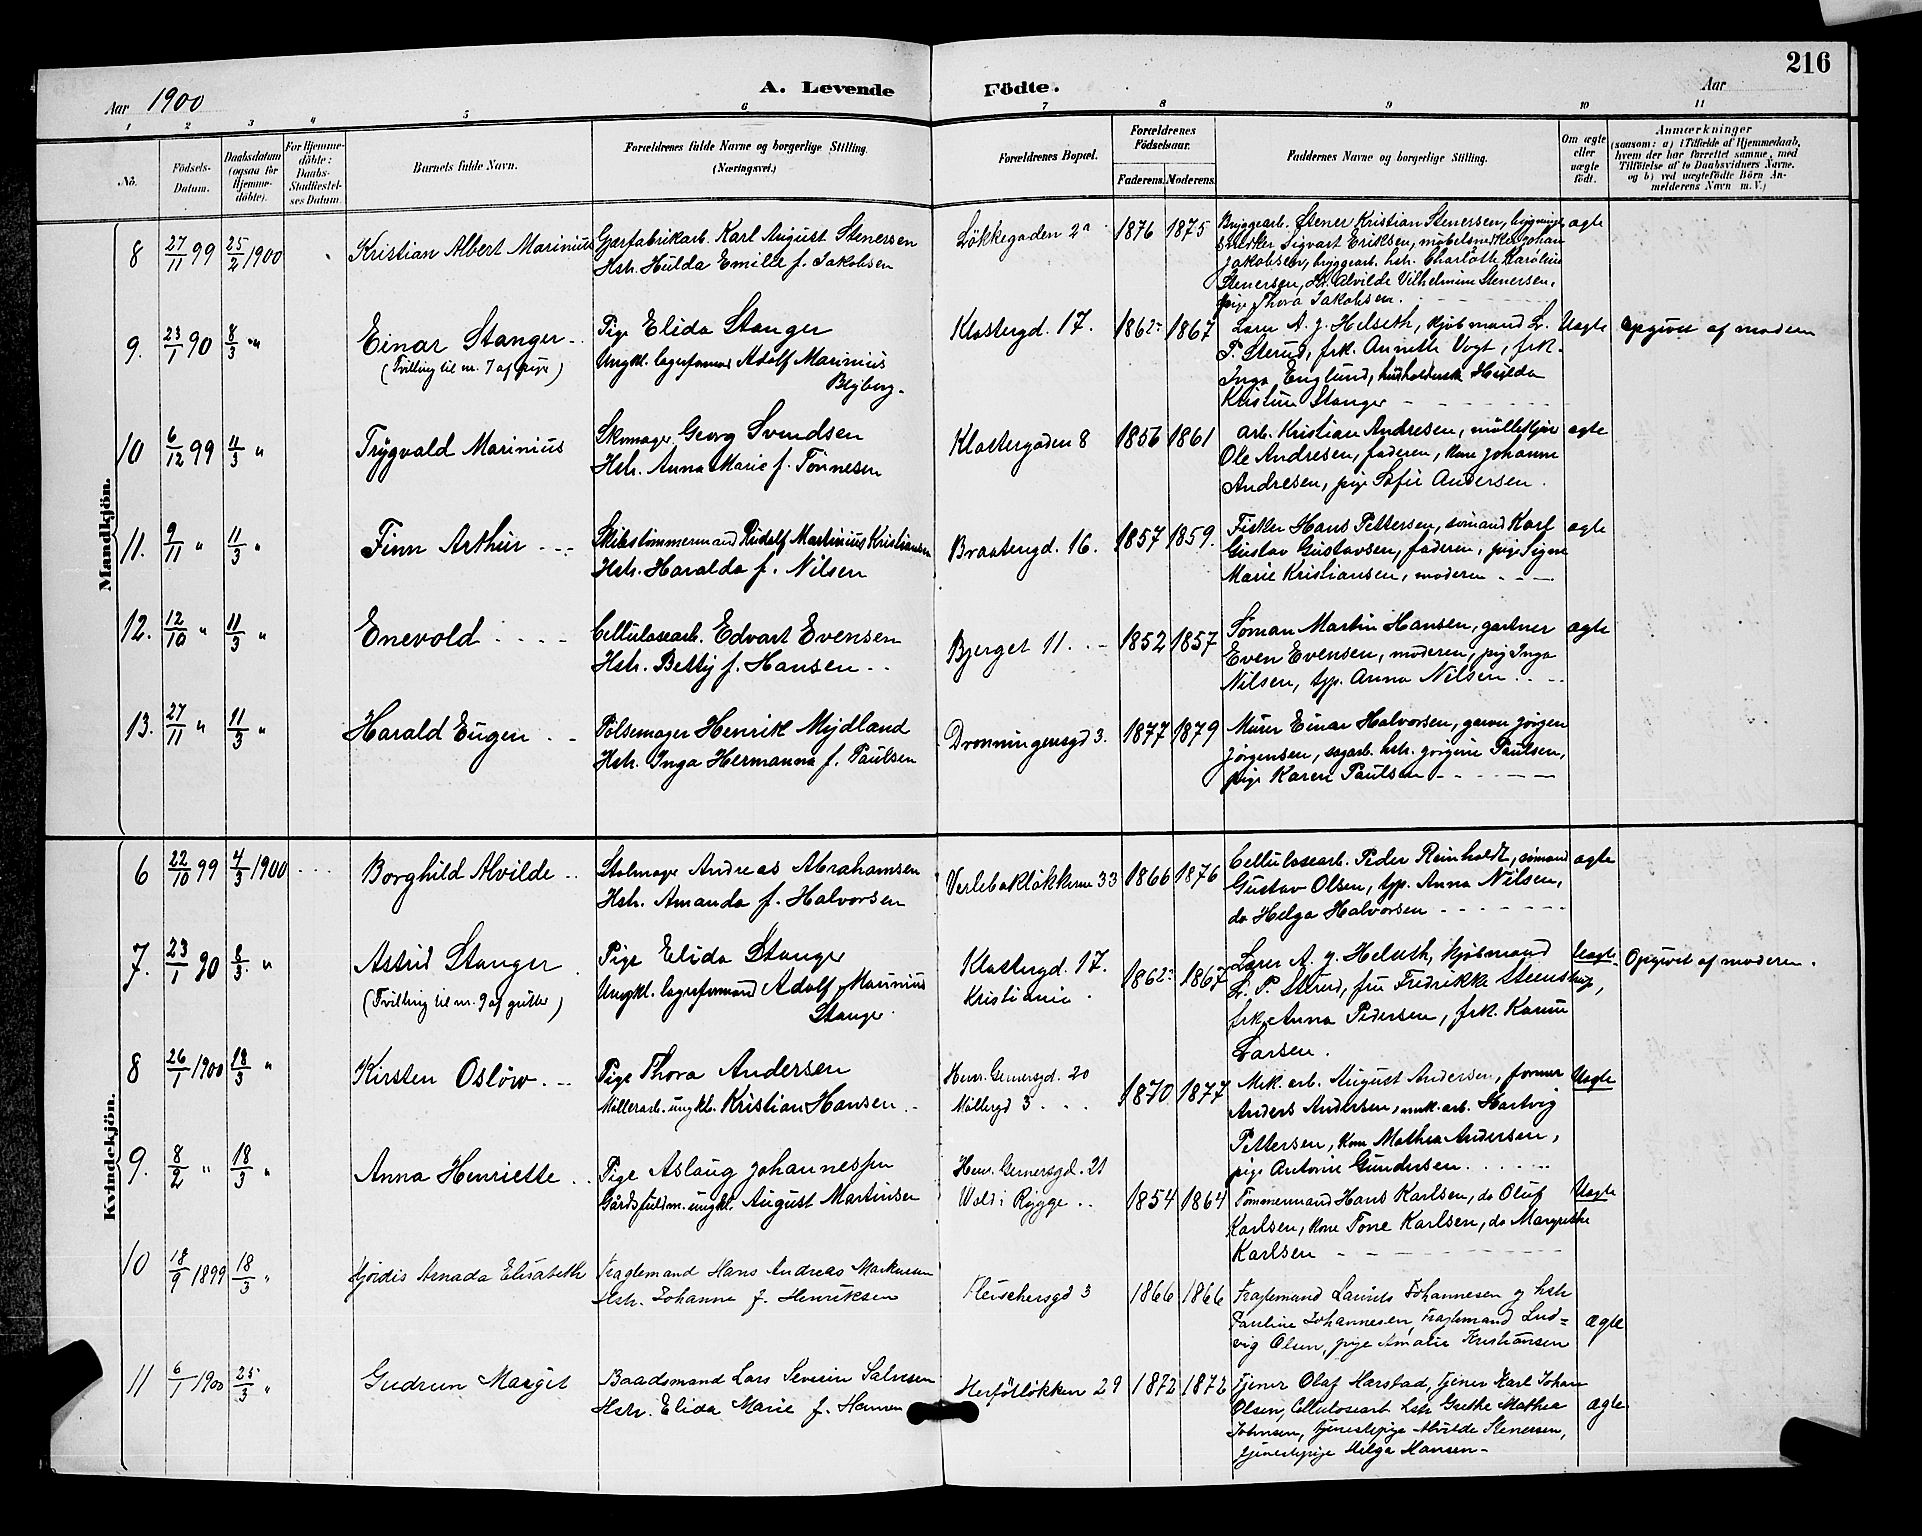 216
Aar 1900
A. Levende Födte.
Aar
1 2 3 4 5 6 7 8 9 10 11
No.
Födsels-Datum.
Daabsdatum (ogsaa for Hjemmedöbte).
For Hjemmedöbte: Daabs-Stadfæstelses Datum
Barnets fulde Navn.
Forældrenes fulde Navne og borgerlige Stilling. (Næringsvei.)
Forældrenes Bopæl.
Forældrenes Födselsaar.
Faderens. Moderens.
Faddernes Navne og borgerlige Stilling.
Om ægte eller uægte født.
Anmærkninger
(saasom: a) i Tilfælde af Hjemmedaab, hvem der har forrettet samme, med Tilföielse af to Daabsvidners Navne. og b) ved uægtefödte Börn Anmelderens Navn m. V.)
Mandkjön.
8 27/11 99 25/2 1900 Kristian Albert Marinius
Gjærfabrikarb. Karl August Stenersen
Hstr. Hulda Emilie f. Jakobsen
Lökkegaden 2a 1876 1875
Bryggearb. Stener Kristian Stenersen, bygnings
snedker Sigvart Eriksen, møbelsnedker Johan
Jakobsen, bryggearb. hstr. Charlotte Karoline
Stenersen, Alvilde Vilhelmine Stenersen,
pige Thora Jakobsen.
ægte
9. 23/1 90 8/3 " Einar Stanger
(Tvilling til nr. 7 af piger)
Pige Elida Stanger
Ungkl. lagerformand Adolf Marinius
Blyberg
Klostergd. 17. 1862 1867
Lærer A. J. Helseth, kjøbmand L.
P. Sterud, frk. Annette Vogt, frk.
Inga Englund, husholderske Hulda
Kristine Stanger
Uægte
Opgivet af moderen
10 6/12 99 11/3 " Trygvald Marinius
Skomager Georg Svendsen
Hstr. Anna Marie f. Tönnesen
Klostergaden 8 1856 1861
Arb. Kristian Andresen,
Ole Andresen, faderen, kone Johanne
Andresen, pige Sofie Andersen.
ægte
11. 9/11 " 11/3 " Finn Arthur
Skibstømmermand Rudolf Martinius Kristiansen
Hstr. Haralda f. Nilsen
Braatengd. 16. 1857 1859.
Fisker Hans Pettersen, sømand Karl
Gustav Gustavsen, faderen, pige Signe
Marie Kristiansen, moderen
ægte
12. 12/10 " 11/3 " Enevold
Cellulosearb. Edvart Evensen
Hstr. Betty f. Hansen
Bjerget 11. 1852 1857
Sömand Martin Hansen, gartner
Even Evensen, moderen, pige Inga
Nilsen, tjp. Anna Nilsen
ægte
13. 27/11 " 11/3 " Harald Eugen
Pølsemager Henrik Mydland
Hstr. Inga Hermanna f. Paulsen
Dronningensgd 3. 1877 1879
Murer Einar Halvorsen, garver Jörgen
Jörgensen, sagarb. hstr. Jörgine Paulsen,
pige Karen Paulsen
Kvindekjön.
6 22/10 99 4/3 1900 Borghild Alvilde
Stolmager Andreas Abrahamsen
Hstr. Amanda f. Halvorsen
Værlebakløkkerne 33 1866 1876
Cellulosearb. Peder Reinholdt, sømand
Gustav Olsen, tjp. Anna Nilsen,
do Helga Halvorsen
ægte
7. 23/1 90 8/3. " Astrid Stanger
(Tvilling til nr. 9 af gutter)
Pige Elida Stanger
Ungkl. lagerformand Adolf Marinius
Stanger
Klostergd. 17.
Kristiania
1862 1867
Lærer A. J. Helseth, kjøbmand
L. P. Sterud, fru Fredrikke Steenstrup,
frk. Anna Pedersen, frk. Karen
Larsen.
Uægte
Opgivet af moderen.
8 26/1 1900 18/3 " Kirsten Oslöw
Pige Thora Andersen
Møllerarb. ungkl. Kristian Hansen
Henr. Gernersgd. 20
Møllergd 3
1870 1877
Mek. arb. August Andersen, former
Anders Andersen, mek. arb. Hartvig
Pettersen, kone Mathea Andersen,
pige Antonie Gundersen
Uægte
9. 8/2 " 18/3 " Anna Henriette
Pige Aslaug Johannessen
Gårdsfuldm. ungkl. August Martinsen
Henr. Gernersgd. 21
Vold i Rygge
1854 1864
Tømmermand Hans Karlsen, do Oluf
Karlsen, kone Tone Karlsen, do Margrethe
Karlsen
Uægte
10 18/9 1899 18/3 " Hjördis Arnada Elisabeth
Fragtemand Hans Andreas Markussen
Hstr. Johanne f. Henriksen
Fleischersgd 3 1866 1866
Fragtemand Laurits Johannesen og hstr
Pauline Johannesen, Fragtemand Lud=
vig Olsen, pige Amalie Kristiansen
ægte
11 6/1 1900 25/3 " Gudrun Margit
Baadsmand Lars Severin Salvesen
Hstr. Elida Marie f. Hansen
Herfötløkken 29 1872 1872
Tjener Olaf Harstad, Tjener Karl Johan
Olsen, Cellulosearb hstr Grethe Mathea
Johnsen, tjenestepige Alvilde Stenersen,
tjenestepige Helga Hansen
ægte